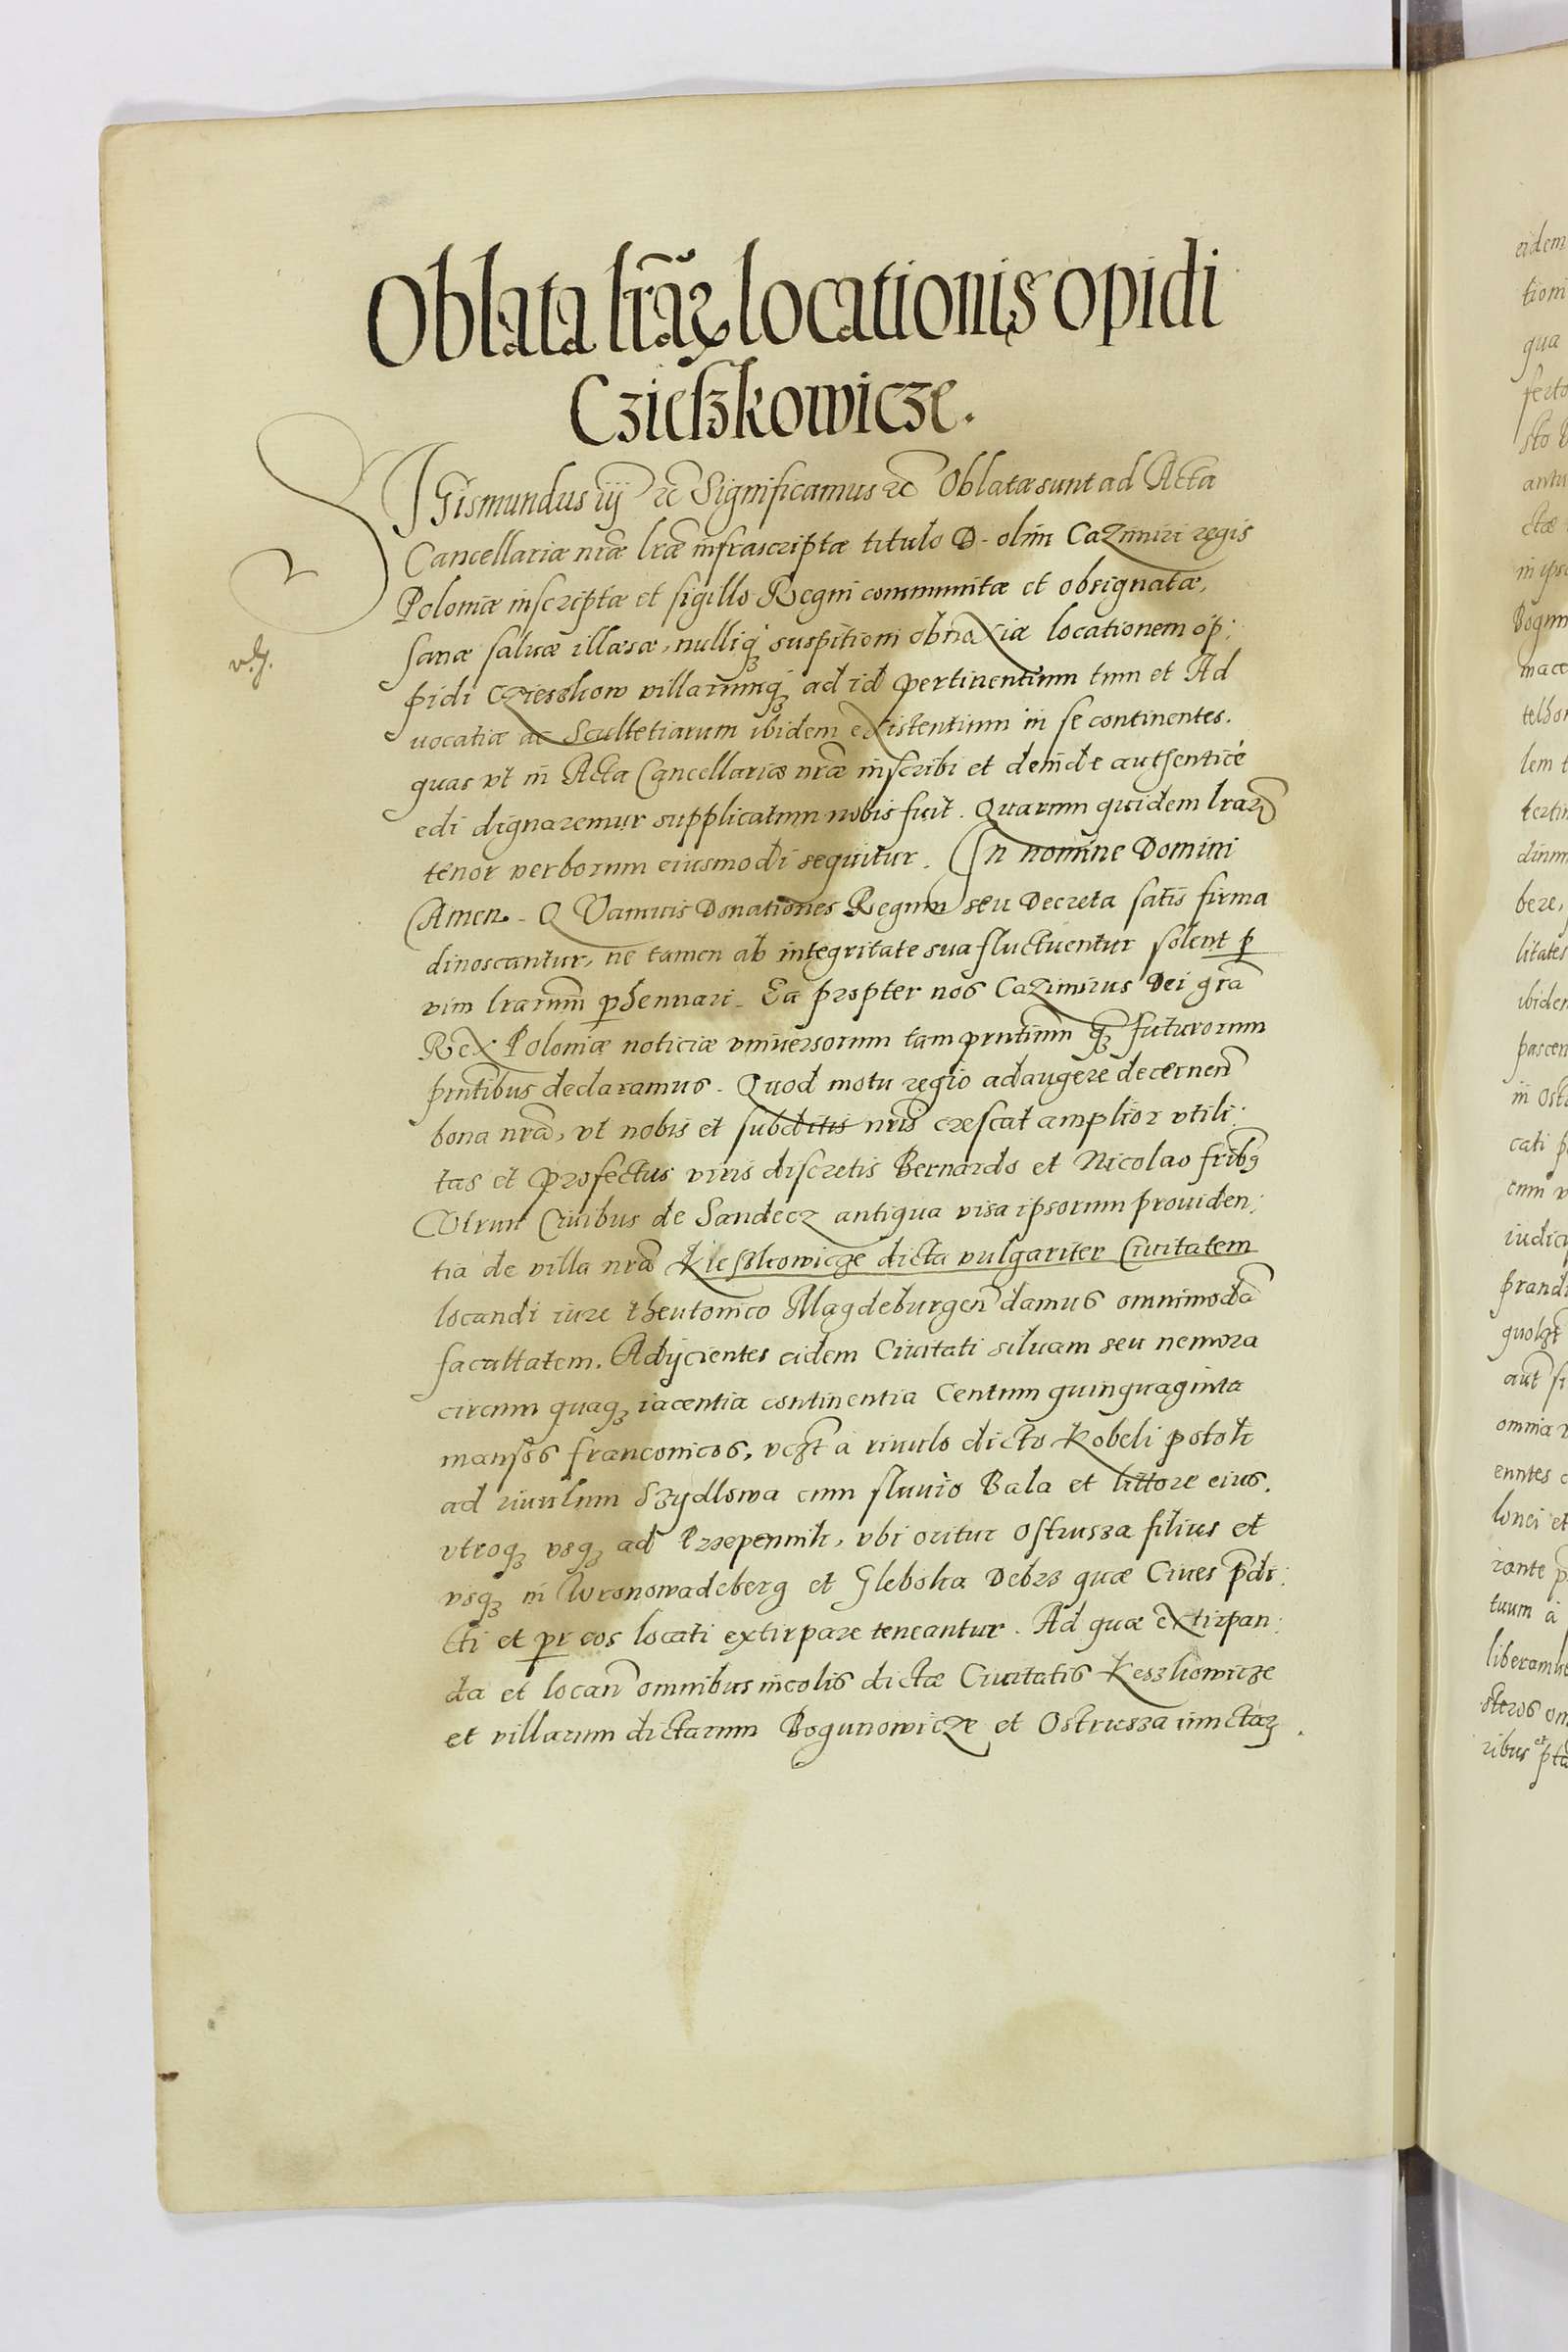 Oblata lrãꝝ locationis opidi
Czieszkowicze.
SIGismundus iij etc Significamus etc Oblatæ sunt ad Acta
Cancellariæ nrãe lrãe infrascriptæ titulo D. olim Cazimiri regis
Poloniæ inscriptæ et sigillo Regni communitæ et obsignatæ,
sanæ saluæ illæsæ, nulliqꝫ suspitioni obnoxiæ locationem op:
pidi Czieszkow villarumqꝫ ad id pertinentium tum et Ad
uocatiæ ac Scultetiarum ibidem existentium in se continentes.
quas vt in Acta Cancellariæ nrãe inscribi et deinde authenticè
edi dignaremur supplicatum nobis fuit. Quarum quidem lrarꝫ
tenor verborum eiusmodi sequitur. In nomine Domini
Amen. QVamuis Donationes Regum seu Decreta satis firma
dinoscantur, ne tamen ab integritate sua fluctuentur solent ꝑ
vim lrarum ꝑhennari. Ea propter nos Cazimirus Dei grã
Rex Poloniæ noticiæ vniuersorum tam pntium qꝫ futurorum
pntibus declaramus. Quod motu regio adaugere decernen
bona nrã, vt nobis et subditis nris crescat amplior vtili:
tas et profectus viris discretis Bernardo et Nicolao fribꝫ
Ciuibus de Sandecz antiqua visa ipsorum prouiden:
tia de villa nrã Kieszkowicze dicta vulgariter Ciuitatem
locandi iure theutonico Magdeburgen damus omnimodã
facultatem. Adijcientes eidem Ciuitati siluam seu nemora
circum quaqꝫ iacentia continentia Centum quinquaginta
mansos franconicos, vcꝫt a riuulo dicto Kobeli potok
ad riuulum Szydlowa cum fluuio Bala et littore eius.
vtroqꝫ vsqꝫ ad Przepennik, vbi oritur Ostrusza filius et
vsqꝫ in Wronowadeberg et Gleboka Debrz quæ Ciues pdi:
cti et ꝑr eos locati extirpare teneantur. Ad quæ extirpan:
da et locan omnibus incolis dictæ Ciuitatis Keszkowicze
et villarum dictarum Bogunowicze et Ostrusza iunctaꝝ
eidem
tioni
qua
ctæ
in ipso